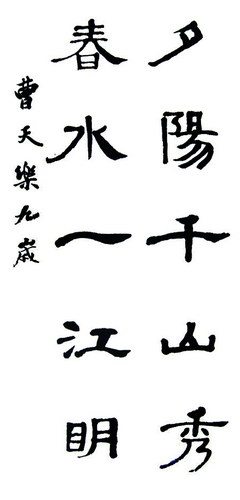 夕陽千山秀
春水一江明
曹天樂九歲